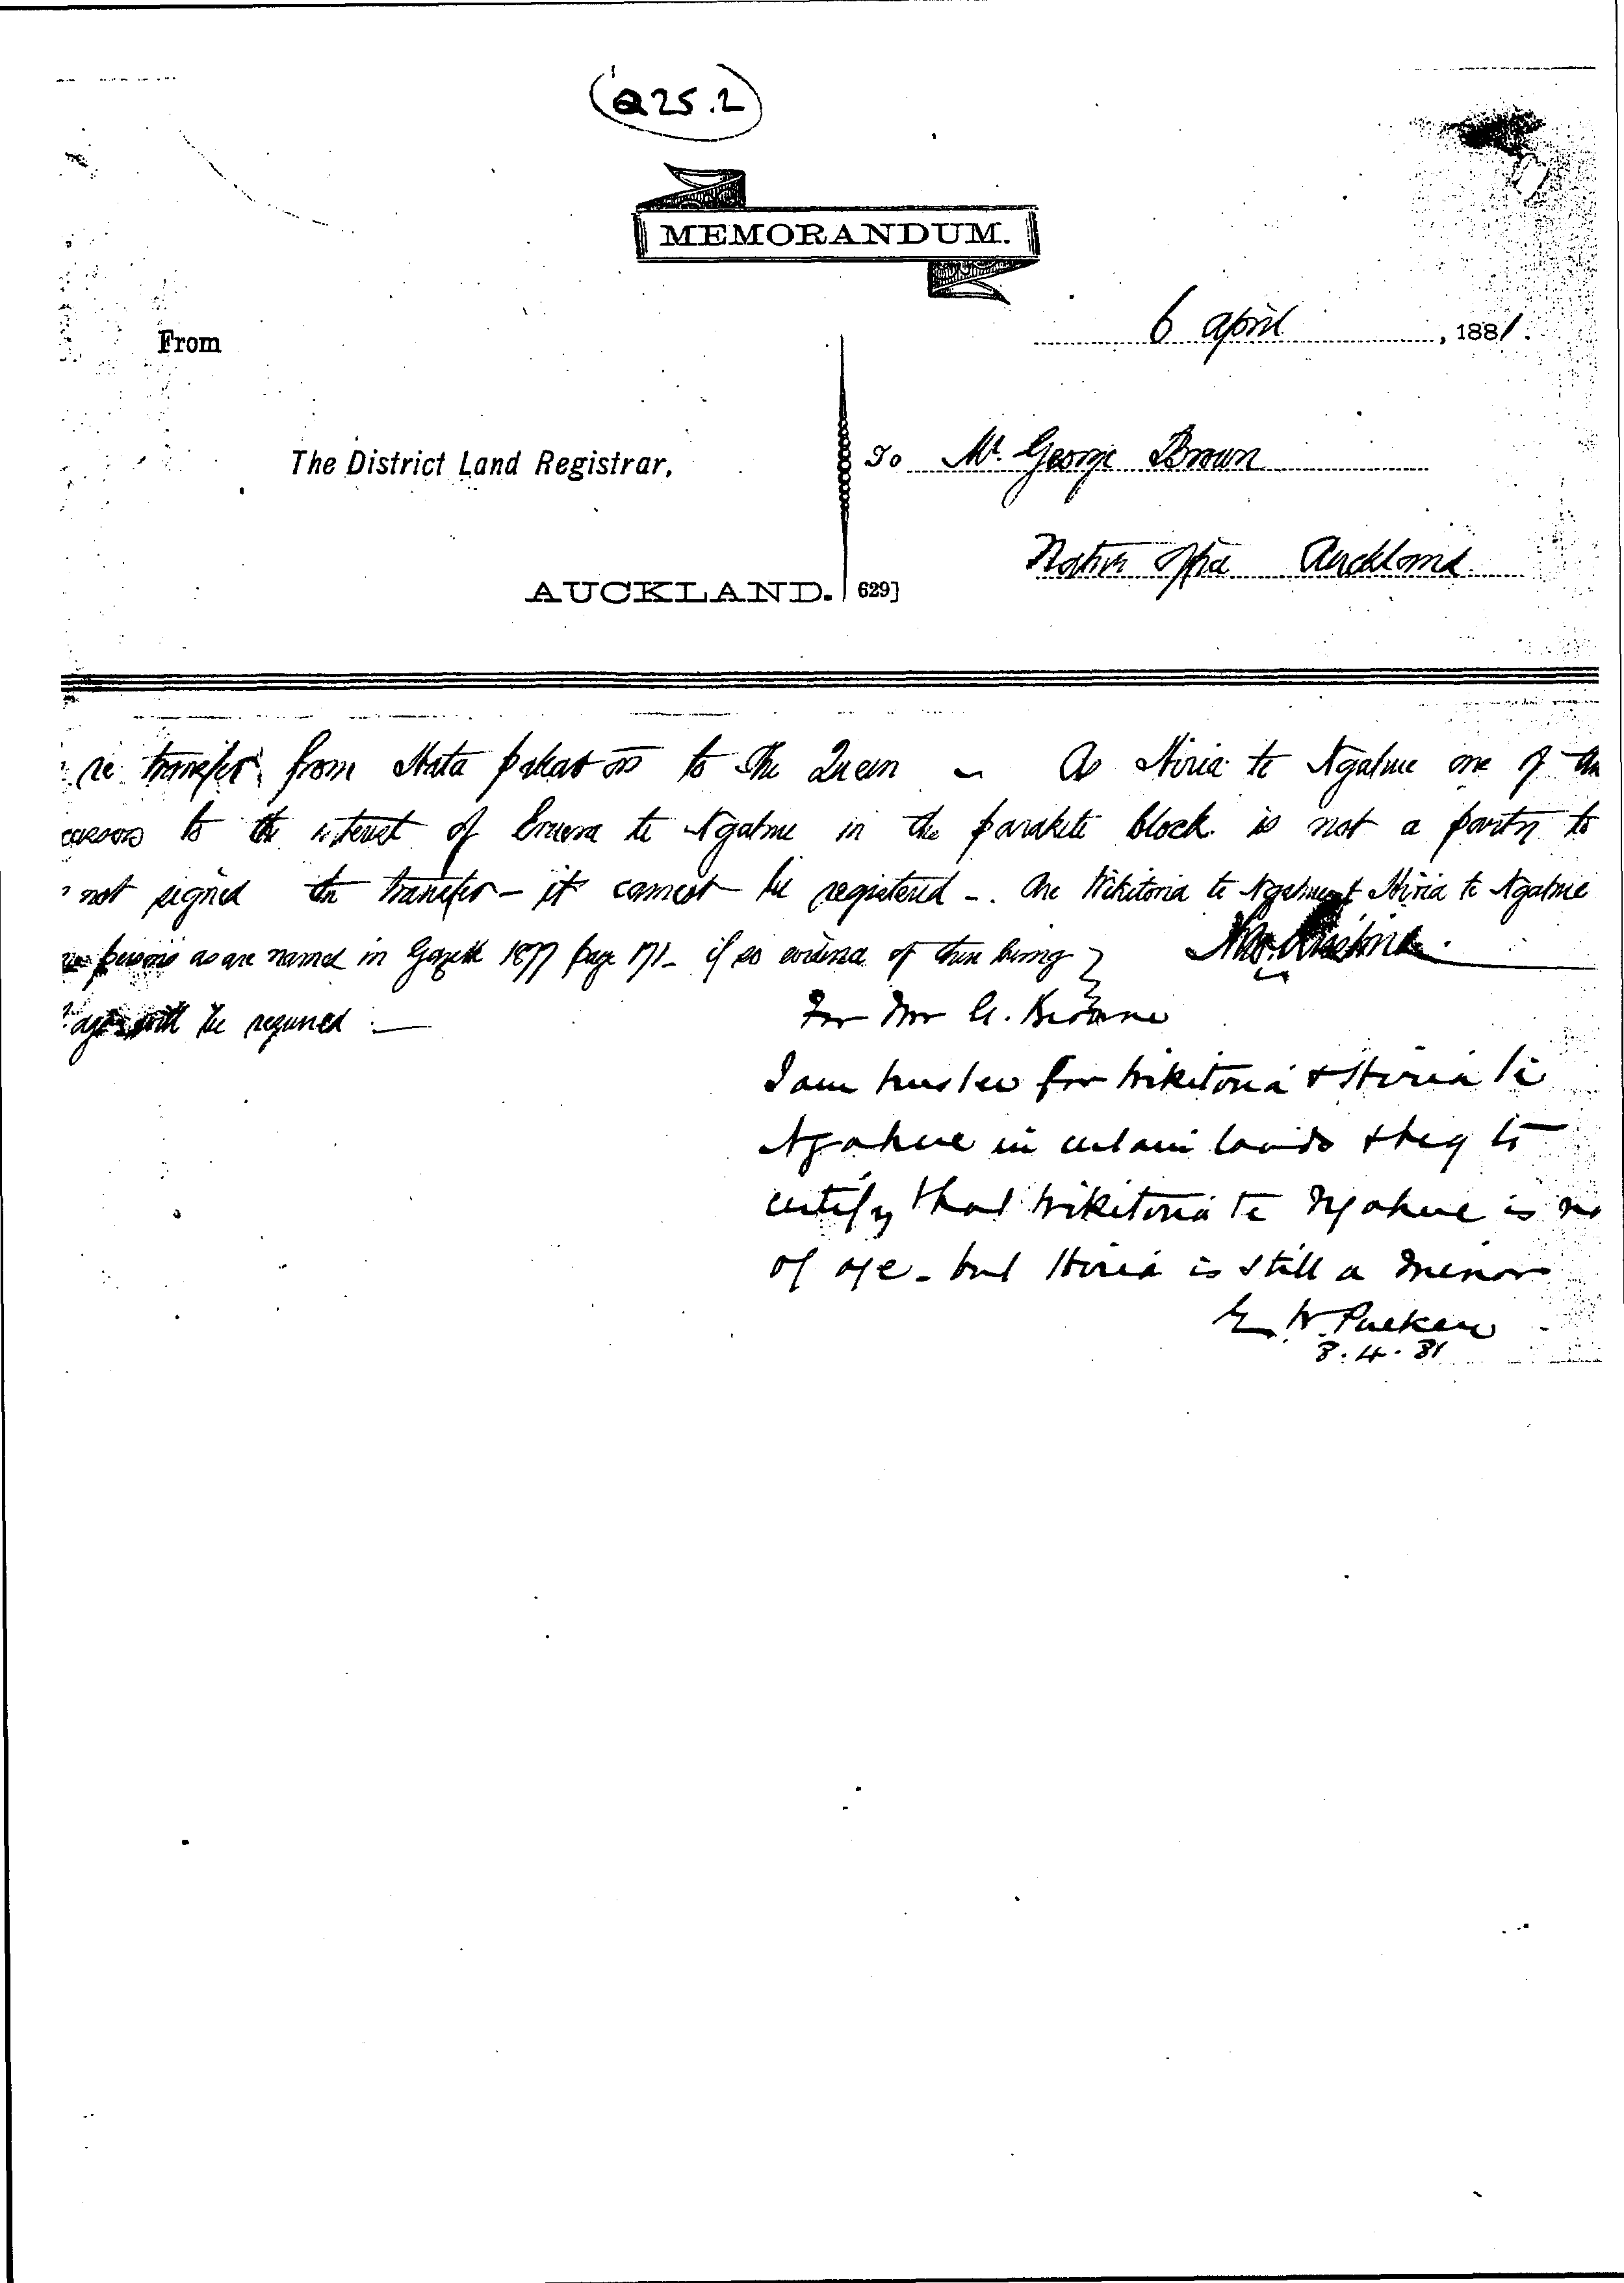 Q25.2
MEMORANDUM.
6 April, 1881.
From
The District Land Registrar,
To Mr. George Brown
Native Office Auckland
AUCKLAND. 629]
re transfer from to the Queen – As Hiria te Ngahue one of the
to the interest of Eruera te Ngahue in the parakete block is not a party to
not signed the transfer – it cannot be registered –. Are Wikitoria te Ngahue & Hiria te Ngahue
persons as are named in Gazette 1877 page 171 – if so evidence of their being
age will be required –
For Mr G. Browne
I am trustee for Wikitoria & Hiria te
Ngahue in certain lands & beg to
certify that Wikitoria te Ngahue is
of age – but Hiria is still a minor
E W Puckey
8.4.81